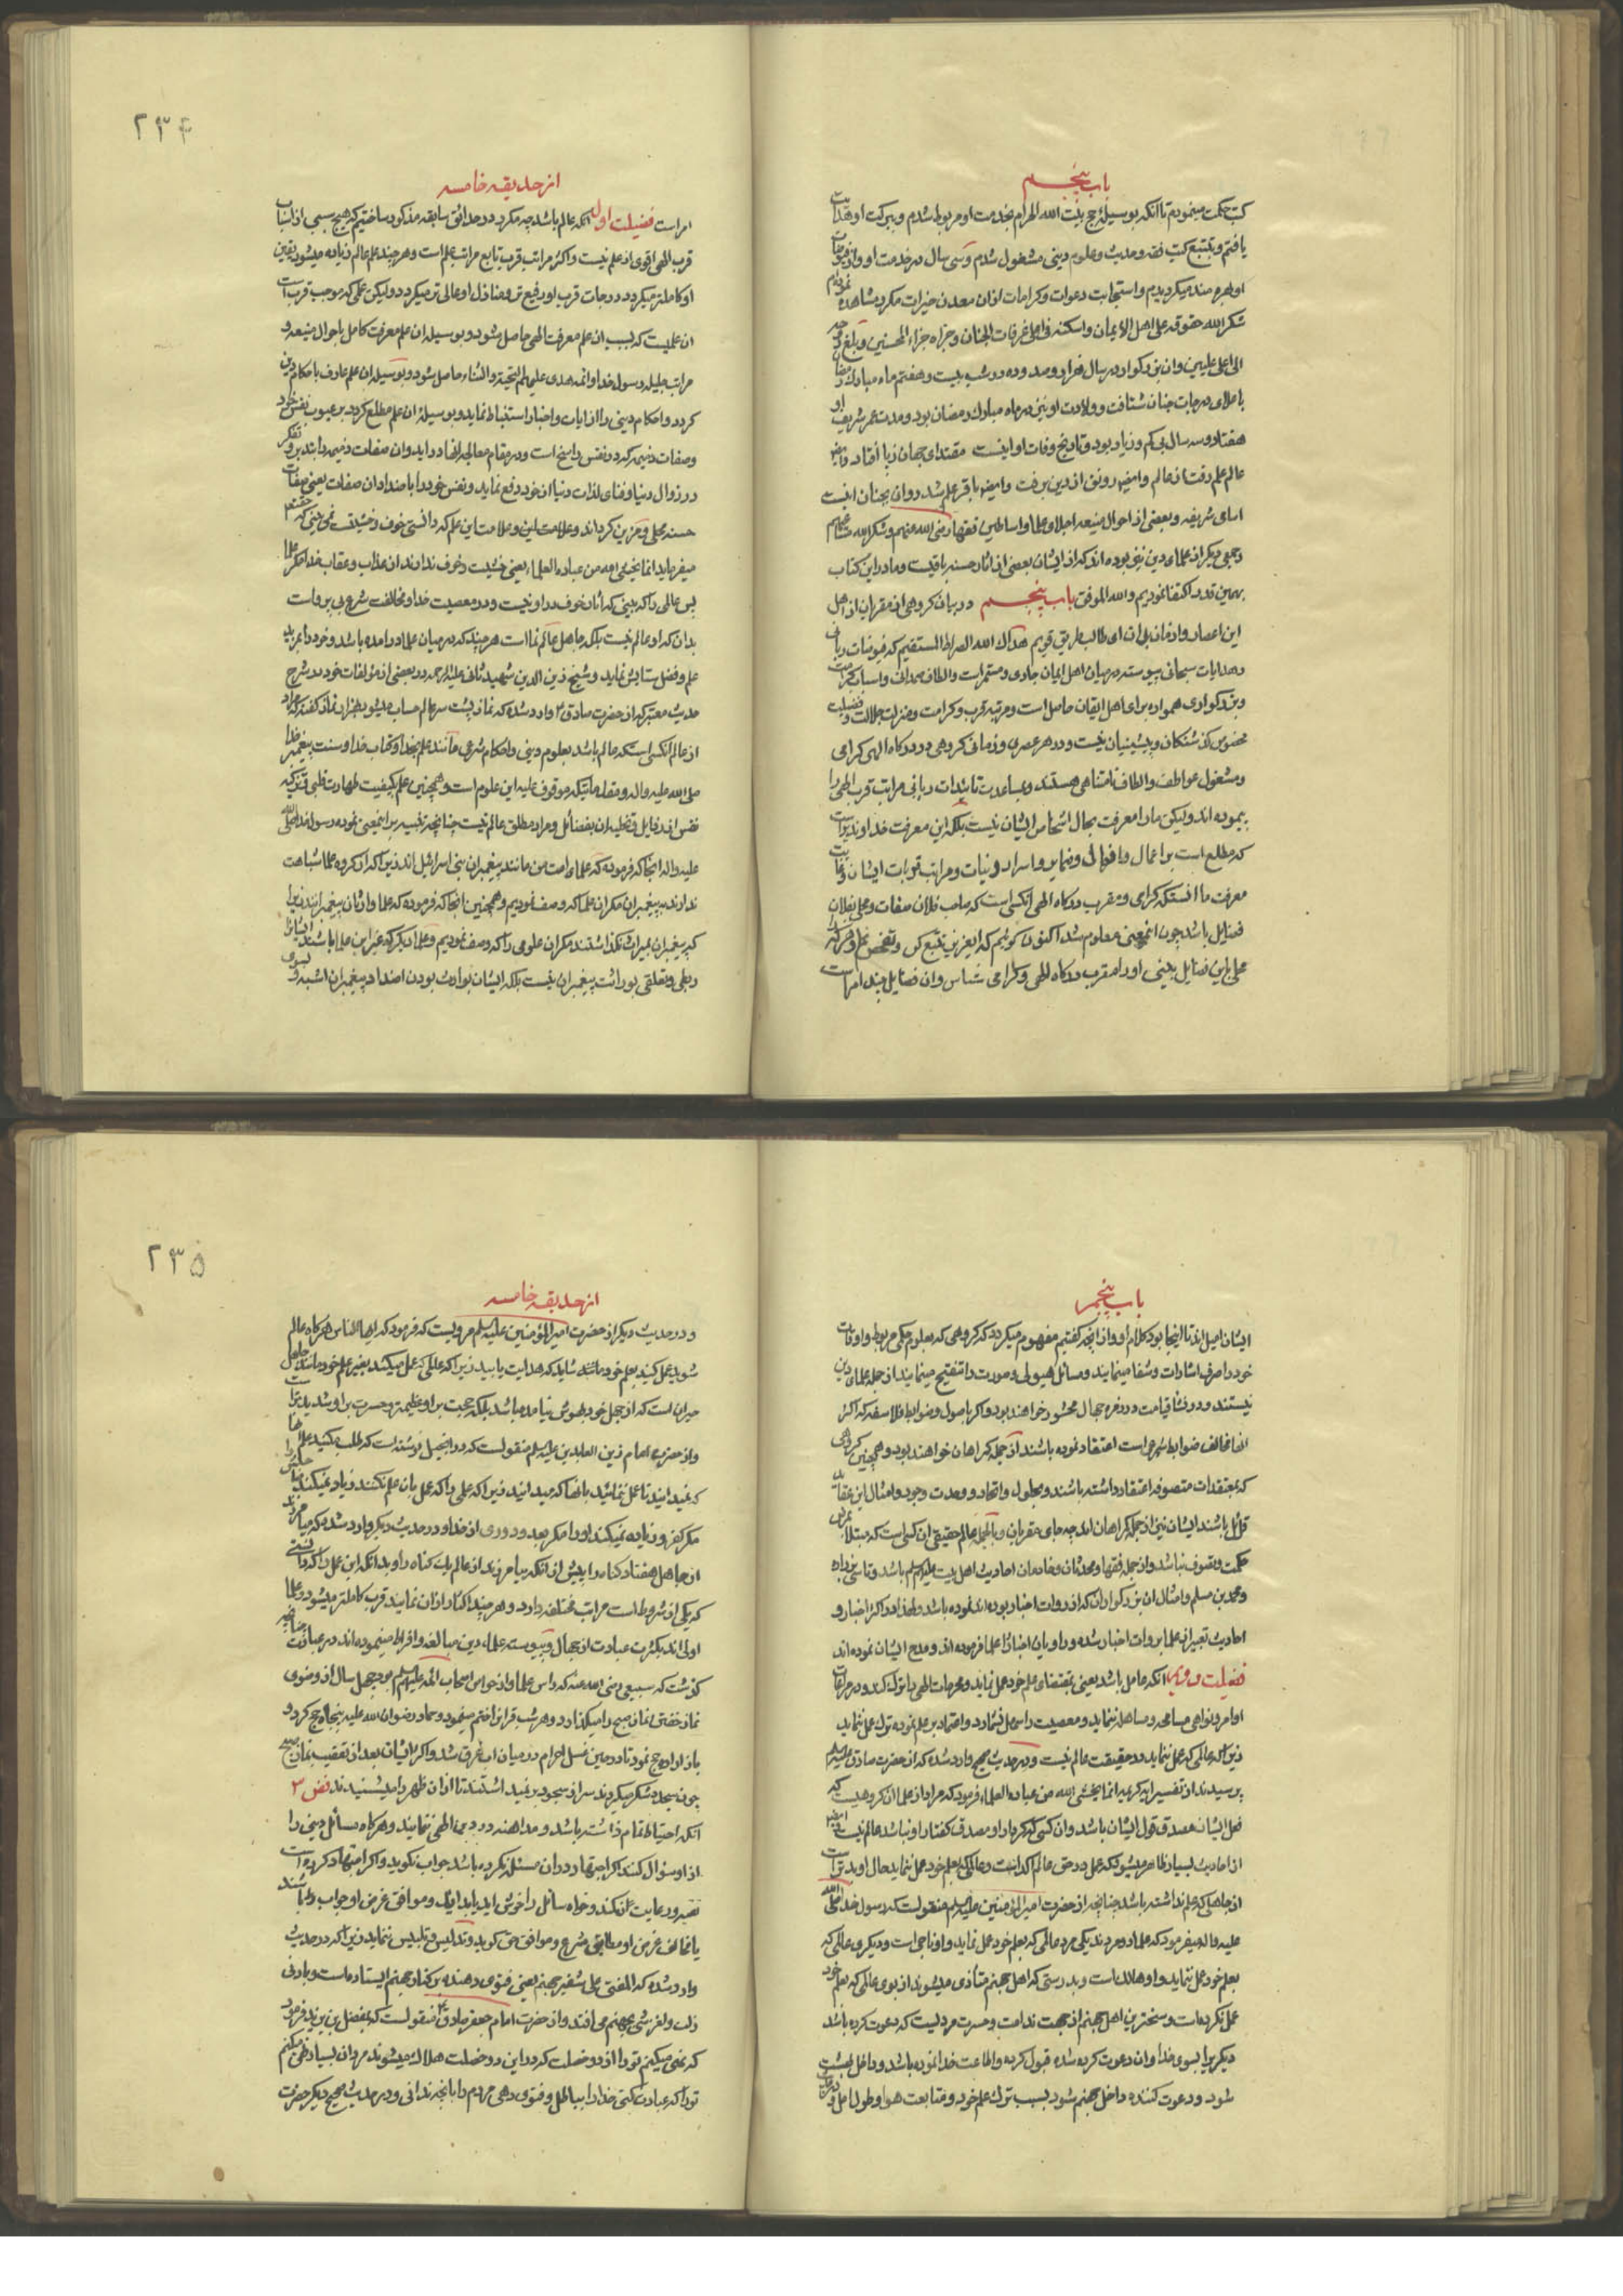 باب پنجم
کتب حکمت مینمودم تا آنکه بوسیلهٔ حج بیت الله الحرام بخدمت او مربوط شدم و ببرکت او هدایت
یافتم و بتتبع کتب فقه و حدیث و علوم دینی مشغول شدم و سی سال در خدمت او و از فیوضات
او بهره مند میکردیدم و استجابت دعوات و کرامات ازان معدن خیرات مکرر مشاهده نمودم
شکر الله حقوقه علی اهل الایمان و اسکنه فی اعلی غرفات الجنان و جزاه جزاء المحسنین و بلغ روحه
الی اعلی علیین وان بزرکوار در سال هزار و صد و ده در شب بیست و هفتم ماه مبارک رمضان
با علای درجات جنان شتافت و ولادت او نیز در ماه مبارک رمضان بود و مدت عمر شریف او
هفتاد و سه سال بی کم و زیاد بود و تاریخ وفات او اینست مقتدای جهان ز پا افتاد
عالم علم رفت از عالم و ایضا رونق از دین برفت و ایضا باقر علم شد روان بجنان اینست
اسامی شریفه و بعضی از احوال منیعه اجلاء علما و اساطین فقها رضی الله عنهم و شکر الله مساعیهم
و جمعی دیکر از علمای دین نیز بوده اند که از ایشان بعضی از اثار حسنه باقیست و ما در این کتاب
بهمین قدر اکتفا نمودیم والله الموفق باب پنجم در بیان کروهی از مقربان از اهل
این اعصار و ازمان بدان ای طالب طریق قویم هداک الله الصراط المستقیم که فیوضات ربانی
و هدایات سبحانی پیوسته در میان اهل ایمان جاری و مستمر است و الطاف صمدانی و اسباب کرامت
و بزرکواری همواره برای اهل ایقان حاصل است و مرتبه قرب و کرامت و منزلت جلالت و فضیلت
مخصوص کذشتکان و پیشینیان نیست و در هر عصری و زمانی کروهی در درکاه الهی کرامی
و مشغول عواطف و الطاف نامتناهی هستند و بمساعدت تائیدات ربانی مراتب قرب الهی را
پیموده اند ولیکن ما را معرفت بحال اشخاص ایشان نیست بلکه این معرفت خداوندیراست
که مطلع است بر اعمال و افعال و ضمایر و اسرار و نیات و مراتب قربات ایشان و غایت
معرفت ما انستکه کرامی و مقرب درکاه الهی انکسی است که صاحب فلان صفات و محلی بفلان
فضایل باشد چون اینمعنی معلوم شد اکنون کوئیم که ایعزیز تتبع کن و تفحص نما و هر که را
محلی باین فضایل بینی او را مقرب درکاه الهی و کرامی شناس وان فضایل چند امر است
۲۳۴
از حدیقه خامسه
امر است فضیلت اول انکه عالم باشد چه مکرر در حدائق سابقه مذکور ساختیم که هیچ سببی از اسباب
قرب الهی اقوی از علم نیست و اکثر مراتب قرب تابع مراتب علم است و هر چند علم عالم زیاده میشود یقین
او کاملتر میکردد و درجات قرب او رفیع تر و منازل او عالی تر میکردد ولیکن علمی که موجب قرب است
ان علمیست که بسبب ان علم معرفت الهی حاصل شود و بوسیله ان علم معرفت کامل باحوال منیعه و
مراتب جلیله رسول خدا و ائمه هدی علیهم التحیة و الثناء حاصل شود و بوسیله ان علم عارف باحکام دین
کردد و احکام دینی را از ایات و اخبار استنباط نماید و بوسیلهٔ ان علم مطلع کردد بر عیوب نفس خود
و صفات ذمیمه که در نفس راسخ است و در مقام معالجه انها در اید وان صفات ذمیمه را بتدبر و تفکر
در زوال دنیا و فنای لذات دنیا از خود دفع نماید و نفس خود را باضداد ان صفات یعنی صفات
حسنه محلی و مزین کرداند و علامت این علم که دانستی خوف و خشیت است نمی بینی که حقتعالی
میفرماید انما یخشی الله من عباده العلماء یعنی خشیت و خوف ندارند از عذاب و عقاب خدا مکر علما
پس عالمی را که بینی که اثار خوف در او نیست و در معصیت خدا و مخالفت شرع بی پرواست
بدان که او عالم نیست بلکه جاهل عالم نما است هر چند که در میان علما در امده باشد و خود را بمزید
علم و فضل ستایش نماید و شیخ زین الدین شهید ثانی علیه الرحمه در بعضی از مؤلفات خود در شرح
حدیث معتبر که از حضرت صادق ع وارد شده که نماز پشت سر عالم حساب میشود بهزار نماز کفته که مراد
از عالم انکسی است که عالم باشد بعلوم دینی و احکام شرعی مانند علم بخدا و کتاب خدا و سنت پیغمبر خدا
صلی الله علیه و اله و مقدماتیکه موقوف علیه این علوم است و همچنین علم بکیفیت طهارت قلبی و تزکیه
نفس از رذایل و تحلیه ان بفضائل و مراد مطلق عالم نیست چنانچه تنبیه بر اینمعنی نموده رسول خدا صلی الله
علیه و اله انجا که فرموده که علمای امت من مانند پیغمبران بنی اسرائیل اند زیرا که ان کروه علما شباهت
ندارند به پیغمبران مکر ان علما که وصف نمودیم و همچنین انجا که فرموده که علما وارثان پیغمبرانند زیرا
که پیغمبران بمیراث نکذاشتند مکر ان علومی را که وصف نمودیم و علماء دیکر که غیر این علما باشند ایشانرا
ربطی و تعلقی بوراثت پیغمبران نیست بلکه ایشان بوارث بودن اضداد پیغمبران اشبه و
باب پنجم
ایشان اصیل اند تا اینجا بود کلام او و از انچه کفتیم مفهوم میکردد که کروهی که بعلوم حکمی مربوط و اوقات
خود را صرف اشارات و شفا مینمایند و مسائل هیولی و صورت را تنقیح مینمایند از جمله علمای دین
نیستند و در نشأ قیامت در زمره جهال محشور خواهند بود و اکر باصول و ضوابط فلاسفه که اکثر
انها مخالف ضوابط شرعی است اعتقاد نموده باشند از جمله کمراهان خواهند بود و همچنین کروهی
که بمعتقدات متصوفه اعتقاد داشته باشند و بحلول و اتحاد و وحدت وجود و امثال این عقاید
قائل باشند ایشان نیز از جمله کمراهان اند چه جای مقربان و بالجمله عالم حقیقی ان کسی است که مبتلا بمرض
حکمت و تصوف نباشد و از جمله فقها و محدثان و خادمان احادیث اهل بیت علیهم السلم باشد و تاسی بزراره
و محمد بن مسلم و امثال ان بزرکواران که از روات اخبار بوده اند نموده باشد و لهذا در اکثر اخبار و
احادیث تعبیر از علما بروات اخبار شده و راویان اخبار را علما فرموده اند و مدح ایشان نموده اند
فضیلت دویم انکه عامل باشد یعنی بمقتضای علم خود عمل نماید و محرمات الهی را ترک کند و در مراعات
اوامر و نواهی مسامحه و مساهله ننماید و معصیت را سهل نشمارد و اعتماد بر علم نموده ترک عمل ننماید
زیرا که عالمی که عمل ننماید در حقیقت عالم نیست و در حدیث صحیح وارد شده که از حضرت صادق علیه السلم
پرسیدند از تفسیر ایه کریمه انما یخشی الله من عباده العلماء فرمود که مراد از علما ان کروهیست که
فعل ایشان مصدق قول ایشان باشد وان کسی که کردار او مصدق کفتار او نباشد عالم نیست
از احادیث بسیار ظاهر میشود که عمل در حق عالم اکد است و عالمی که بعلم خود عمل ننماید حال او بدتر است
از جاهلی که علم نداشته باشد چنانچه از حضرت امیر المؤمنین علیه السلم منقولست که رسول خدا صلی الله
علیه و اله میفرمود که علما دو مردند یکی مرد عالمی که بعلم خود عمل نماید و او ناجی است و دیکری عالمی که
بعلم خود عمل ننماید و او هالک است و بدرستی که اهل جهنم متأذی میشوند از بوی عالمی که بعلم خود
عمل نکرده است و سخترین اهل جهنم از جهت ندامت و حسرت مردیست که دعوت کرده باشد
دیکریرا بسوی خدا وان دعوت کرده شده قبول کرده و اطاعت خدا نموده باشد و داخل بهشت
شود و دعوت کننده داخل جهنم شود بسبب ترک علم خود و متابعت هوا و طول امل و
۲۳۵
از حدیقه خامسه
و در حدیث دیکر از حضرت امیر المؤمنین علیه السلم مرویست که فرمود که ایها الناس هرکاه عالم
شوید عمل کنید بعلم خود شاید که هدایت یابید زیرا که عالمی که عمل میکند بغیر علم خود مانند جاهل
حیران است که از جهل خود بهوش نیامده باشد بلکه حجت بر او عظیمتر و حسرت بر او شدید تر است
و از حضرت امام زین العابدین علیه السلم منقولست که در انجیل نوشته است که طلب مکنید علم انها را
که نمیدانید تا عمل نمائید بانها که میدانید زیرا که علمی را که عمل بان علم نکنند زیاد نمیکند
مکر کفر و زیاده نمیکند او را مکر بعد و دوری از خدا و در حدیث دیکر وارد شده که میامرزند
از جاهل هفتاد کناه را پیش از انکه بیامرزند از عالم یک کناه را و بدانکه این عمل را که دانستی
که یکی از شروط است مراتب مختلفه دارد و هر چند اکثار ازان نمایند قرب کاملتر میشود و علما
اولی اند بکثرت عبادت از جهال و پیوسته علماء دین مبالغه و افراط مینموده اند در عبادت چنانچه
کذشت که سبیعی رضی الله عنه که راس علما و از خواص اصحاب ائمه علیهم السلم بود چهل سال از وضوی
نماز خفتن نماز صبح را میکذارد و هر شب قرانرا ختم مینمود و حماد رضوان الله علیه پنجاه حج کرد و
باز اراده حج نمود تا در حین غسل احرام در میان اب غرق شد و اکثر ایشان بعد از تعقیب نماز صبح
چون سجده شکر میکردند سر از سجود برنمیداشتند تا اذان ظهر را میشنیدند فض ۳
انکه احتیاط تمام داشته باشد و مداهنه در دین الهی ننمایند و هرکاه مسائل دینی را
از او سؤال کنند اکر اجتهاد در ان مسئله نکرده باشد جواب نکوید و اکر اجتهاد کرده است
تقصیر و رعایت نکند و خواه سائل را خوش اید یا بد اید و موافق غرض او جواب داده باشد
یا مخالف غرض او مطابق شرع و موافق حق کوید و تدلیس و تلبیس ننماید زیرا که در حدیث
وارد شده که المفتی علی شفیر جهنم یعنی فتوی دهنده بر کنار جهنم ایستاده است و بادنی
زلت و لغزشی بجهنم می افتد و از حضرت امام جعفر صادق ع منقولست که بمفضل بن یزید فرمود
که نهی میکنم تو را از دو خصلت که در این دو خصلت هلاک میشوند مردان بسیار نهی میکنم
تو را که عبادت کنی خدا را بباطل و فتوی دهی مردم را بانچه ندانی و در حدیث صحیح دیکر حضرت